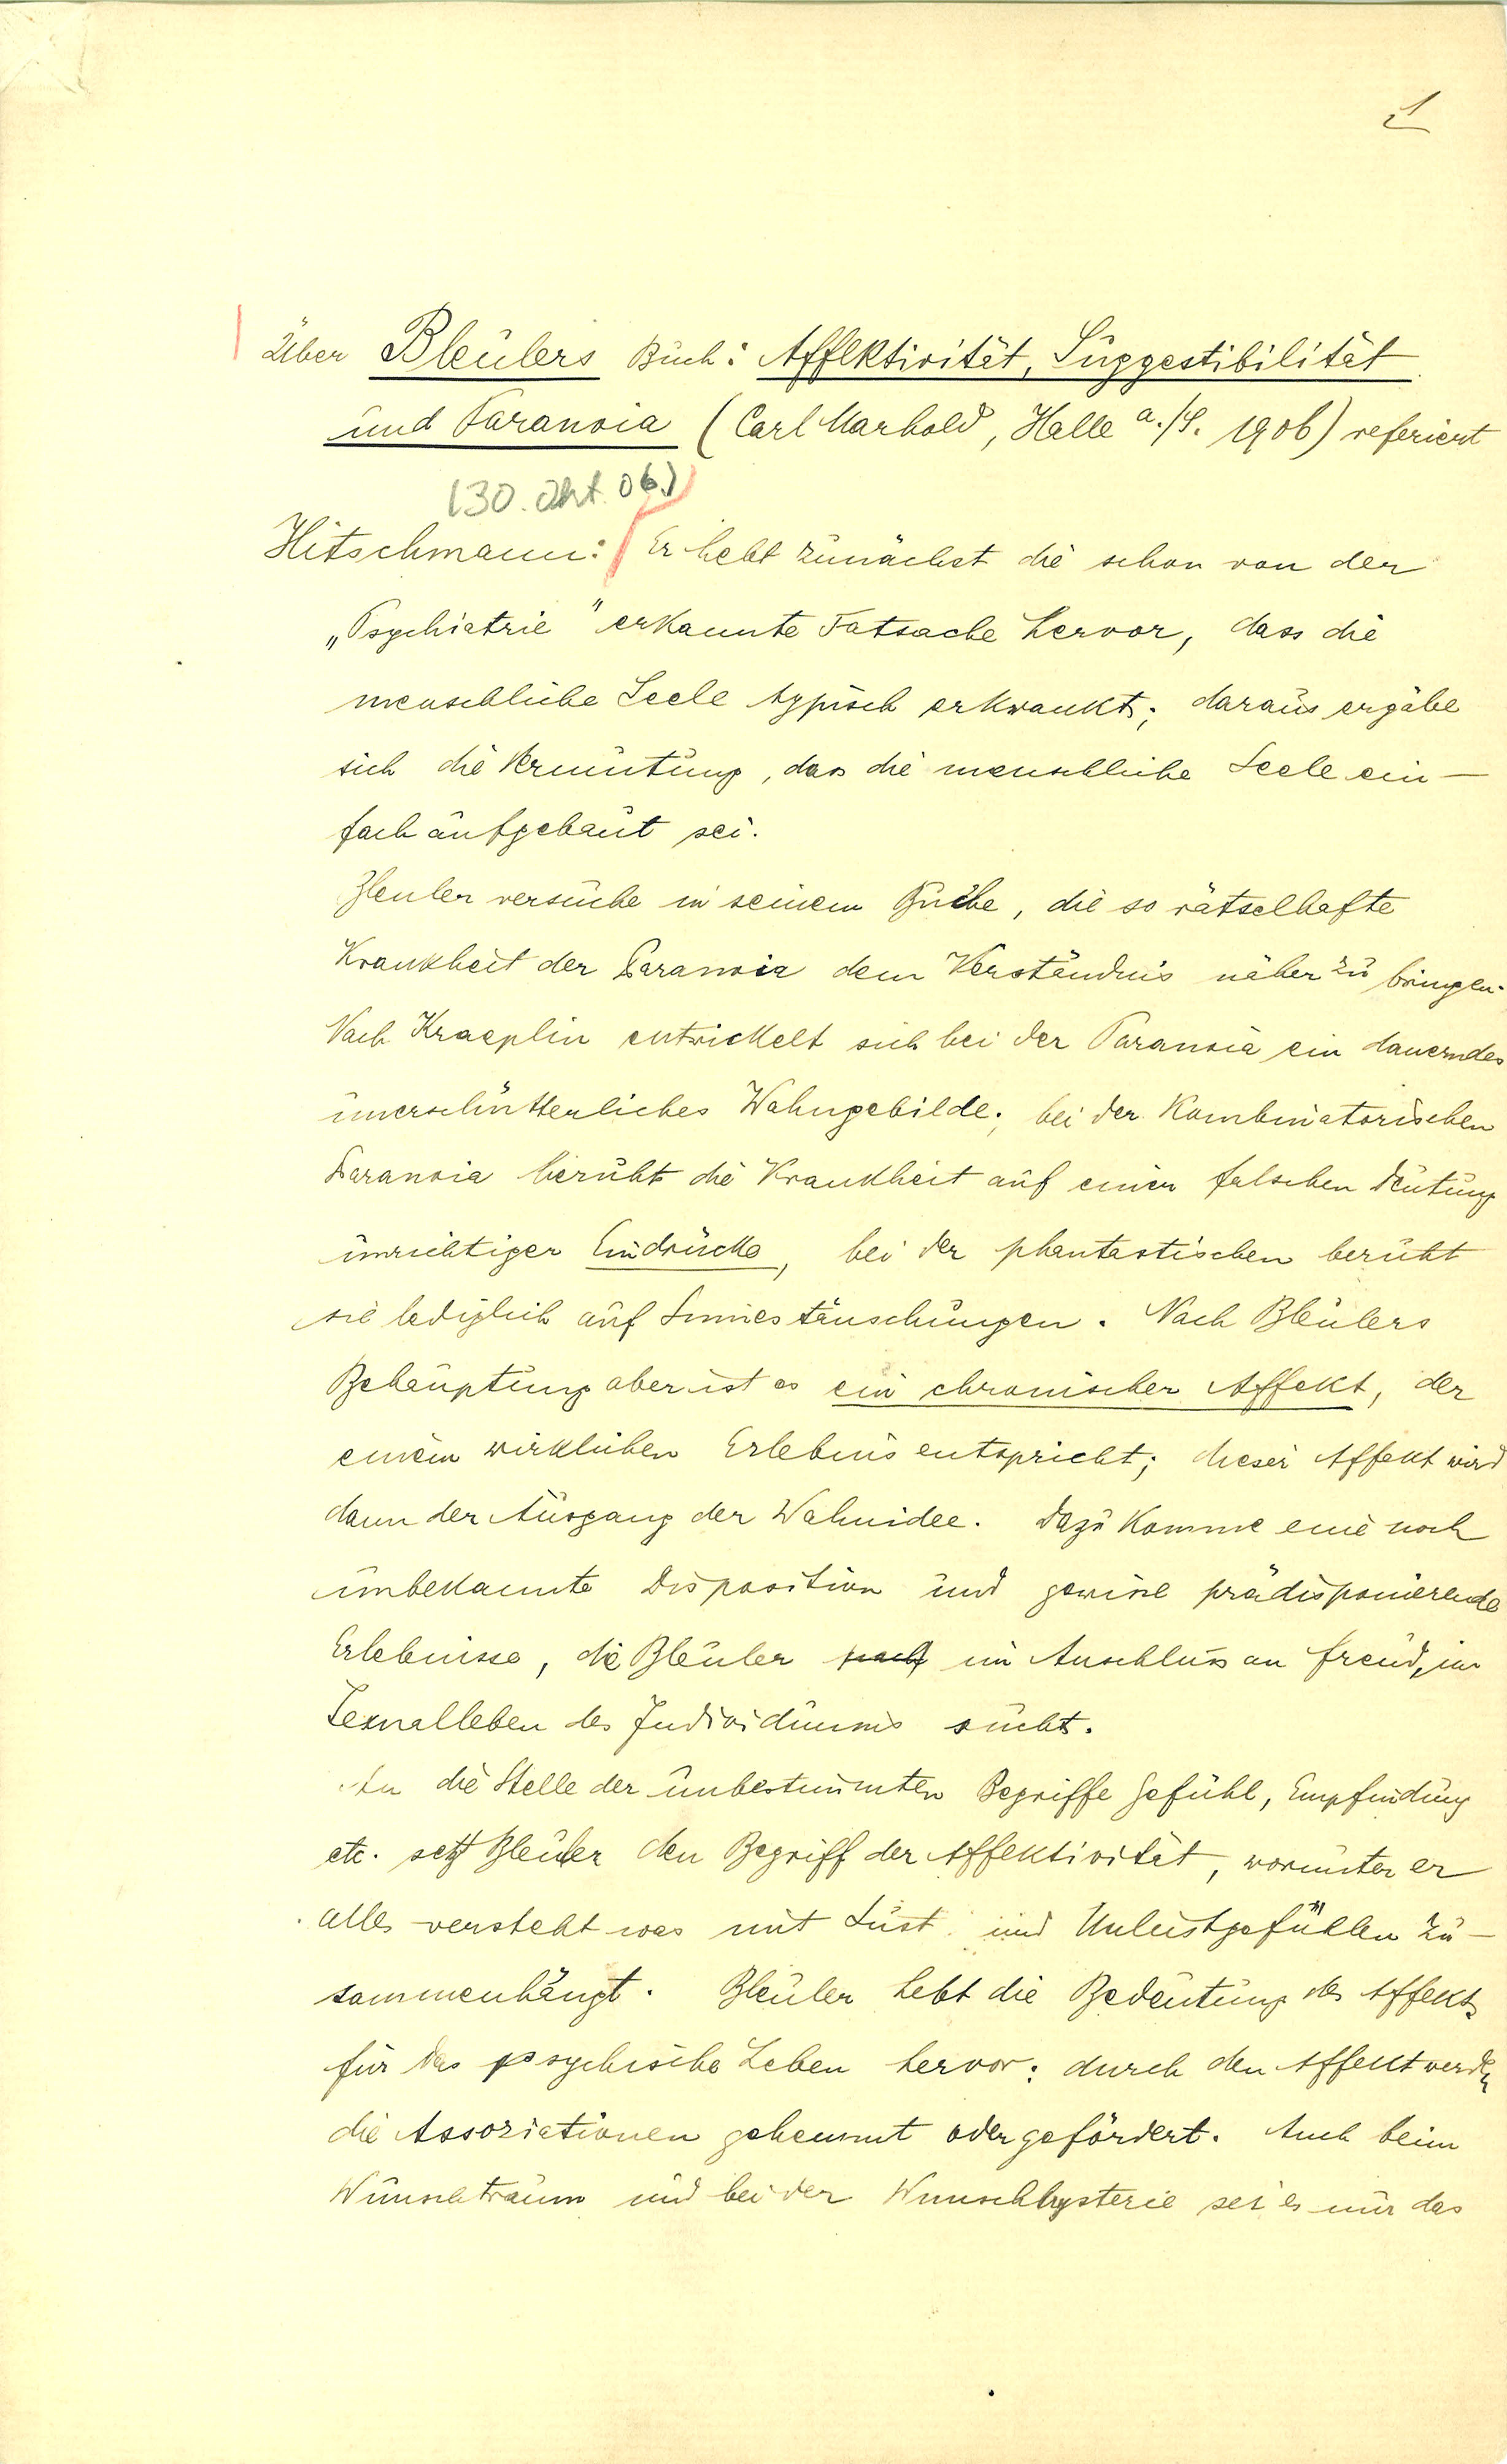 1
Über Bleulers Buch: Affektivität, Suggestibilität
und Paranoia (Carl Marhold, Halle a./S. 1906) referiert
(30. Okt. 06)
Hitschmann: Er hebt zunächst die schon von der
„Psychiatrie" erkannte Tatsache hervor, dass die
menschliche Seele typisch erkrankt; daraus ergäbe
sich die Vermutung, dass die menschliche Seele ein-
fach aufgebaut sei.
Bleuler versuche in seinem Buche, die so rätselhafte
Krankheit der Paranoia dem Verständnis näher zu bringen.
Nach Kraeplin entwickelt sich bei der Paranoia ein dauerndes
unerschütterliches Wahngebilde; bei der Kombinatorischen
Paranoia beruht die Krankheit auf einer falschen Deutung
unrichtiger Eindrücke, bei der phantastischen beruht
sie lediglich auf Sinnestäuschungen. Nach Bleulers
Behauptung aber ist es ein chronischer Affekt, der
einem wirklichen Erlebnis entspricht; dieser Affekt wird
dann der Ausgang der Wahnidee. Dazu Komme eine noch
unbekannte Disposition und gewisse prädisponierende
Erlebnisse, die Bleuler nach im Anschluss an Freud, im
Sexualleben des Individuums sucht.
An die Stelle der unbestimmten Begriffe Gefühl, Empfindung
etc. setzt Bleuler den Begriff der Affektivität, worunter er
alles versteht was mit Lust und Unlustgefühlen zu-
sammenhängt. Bleuler hebt die Bedeutung des Affekts
für das psychische Leben hervor: durch den Affekt werden
die Assoziationen gehemmt oder gefördert. Auch beim
Wunschtraum und bei der Wunschhysterie sei es nur das